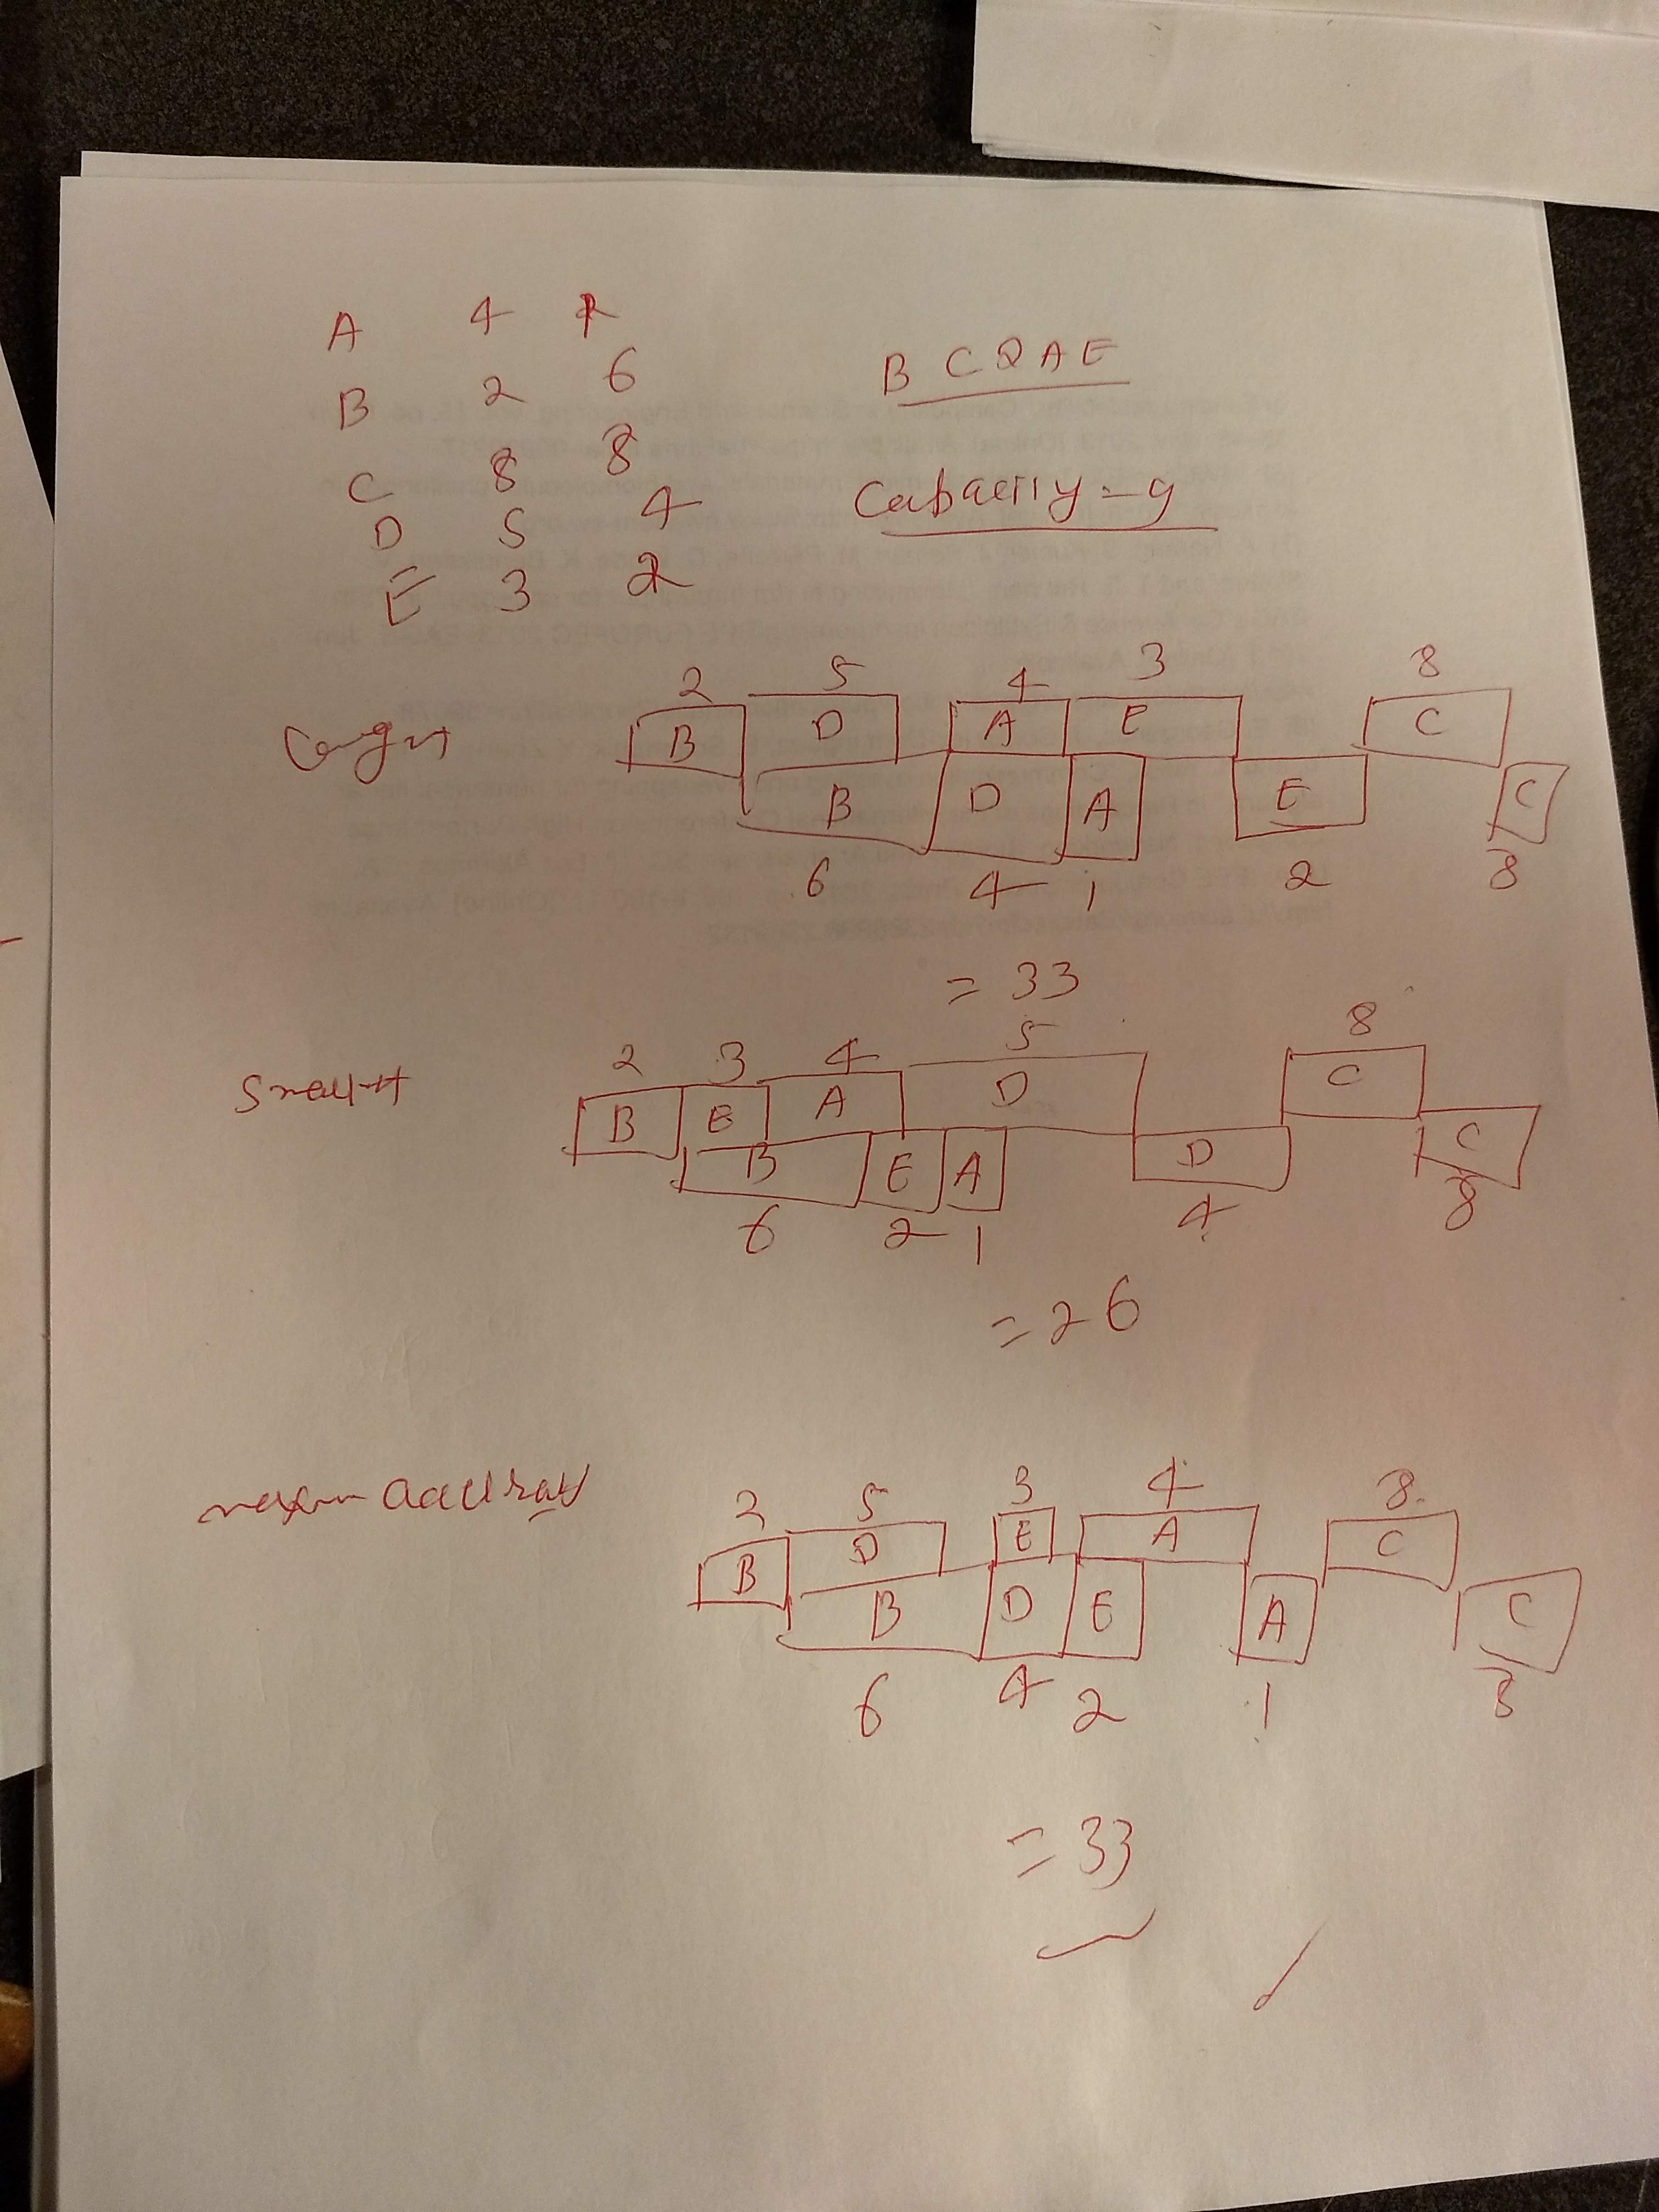 A 4 1
B 2 6
C 8 8
D 5 4
E 3 2
B C D A E
Capacity = 9
2 5 4 3 8
B D A E C
B D A E C
6 4 1 2 8
= 33
Smallest
2 3 4 5 8
B E A D C
B E A D C
6 2 1 4 8
= 26
2 5 3 4 8
B D E A C
B D E A C
6 4 2 1 8
= 33